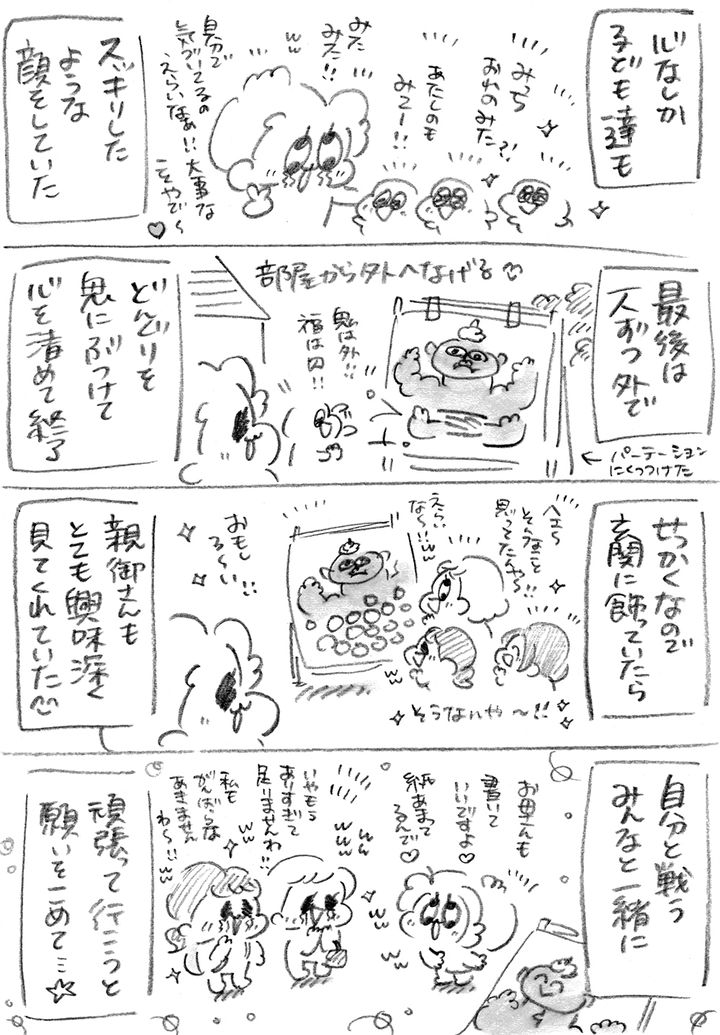 心なしか
子ども達も
みっち
おれのみた?!
あたしのも
みてー!!
みた
みた!!
自分で
気づいてるの
えらいなぁ!!大事な
こそやで〜
スッキリした
ような
顔をしていた
最後は
一人ずつ外で
部屋から外へなげる
←パーテーション
にくっつけた
鬼は外!!
福は内!!
どんぐりを
鬼にぶつけて
心を清めて終了
せっかくなので
玄関に飾っていたら
へえ〜
そんなこと
思ってたんやる!!
えらい
な〜!!
そうなんや〜!!
おもし
ろ〜い!!
親御さんも
とても興味深く
見てくれていた
自分と戦う
みんなと一緒に
お母さんも
書いて
いいですよ♡
紙あまって
るんで♡
いやもう
ありすぎて
足りませんわ!!
私も
がんばらな
あきません
わ〜!!
頑張って行こうと
願いをこめて…☆